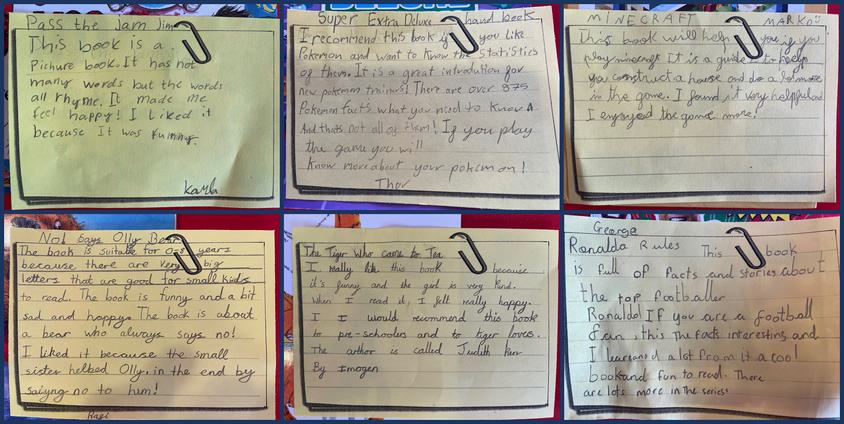 Pass the Jam Jim
This book is a
Picture book. It has not
many words but the words
all rhyme. It made me
feel happy! I Liked it
because It was funny.
Karla
Super Extra Deluxe hand book
I recommend this book if you like
Pokemon and want to know the statistics
of them. It is a great introdution for
new pokemon trainers! There are over 875
Pokemon facts what you need to know
And thats not all of them! If you play
the game you will
know more about your pokemon!
Thor
MINECRAFT MARKO
This book will help you if you
play minecraft It is a guide to help
you construct a house and do a lot more
in the game. I found it very helpful and
I enjoyed the game more!
No! Says Olly Bear
The book is suitable for 0-5 years
because there are very big
letters that are good for small kids
to read. The book is funny and a bit
sad and happy. The book is about
a bear who always says no!
I liked it because the small
sister helbed Olly. in the end by
saiyng no to him!
The Tiger Who came to Tea
I really like this book because
it's funny and the girl is very kind.
When I read it, I felt really happy.
I I would recommend this book
to pre-schoolers and to tiger loves.
The author is called Judith Kerr
By Imogen
George
Ronaldo Rules This book
is full of facts and stories about
the top footballer
Ronaldo! If you are a football
fan, this the facts interesting and
I learned a lot from it a cool
book and fun to read. There
are lots more in the series!